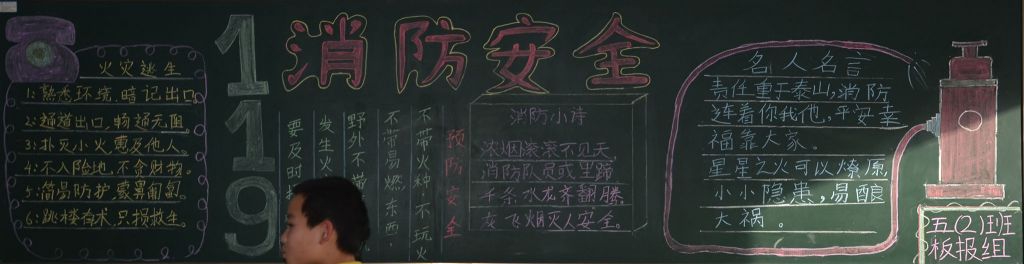 消防安全
119
火灾逃生
1:熟悉环境,暗记出口。
2:通道出口,畅通无阻。
3:扑灭小火,惠及他人。
4:不入险地,不贪财物。
5:简易防护,蒙鼻匍匐。
6:跳楼有术,只损救生。
要及时
发生火
野外不
不带易燃东西,
不带火种不玩火
预防安全
消防小诗
浓烟滚滚不见天,
消防队员或坐蹄
千条水龙齐翻腾
灰飞烟灭人安全。
名人名言
责任重于泰山,消防
连着你我他,平安幸
福靠大家。
星星之火可以燎原
小小隐患,易酿
大祸。
五〇班班
板报组